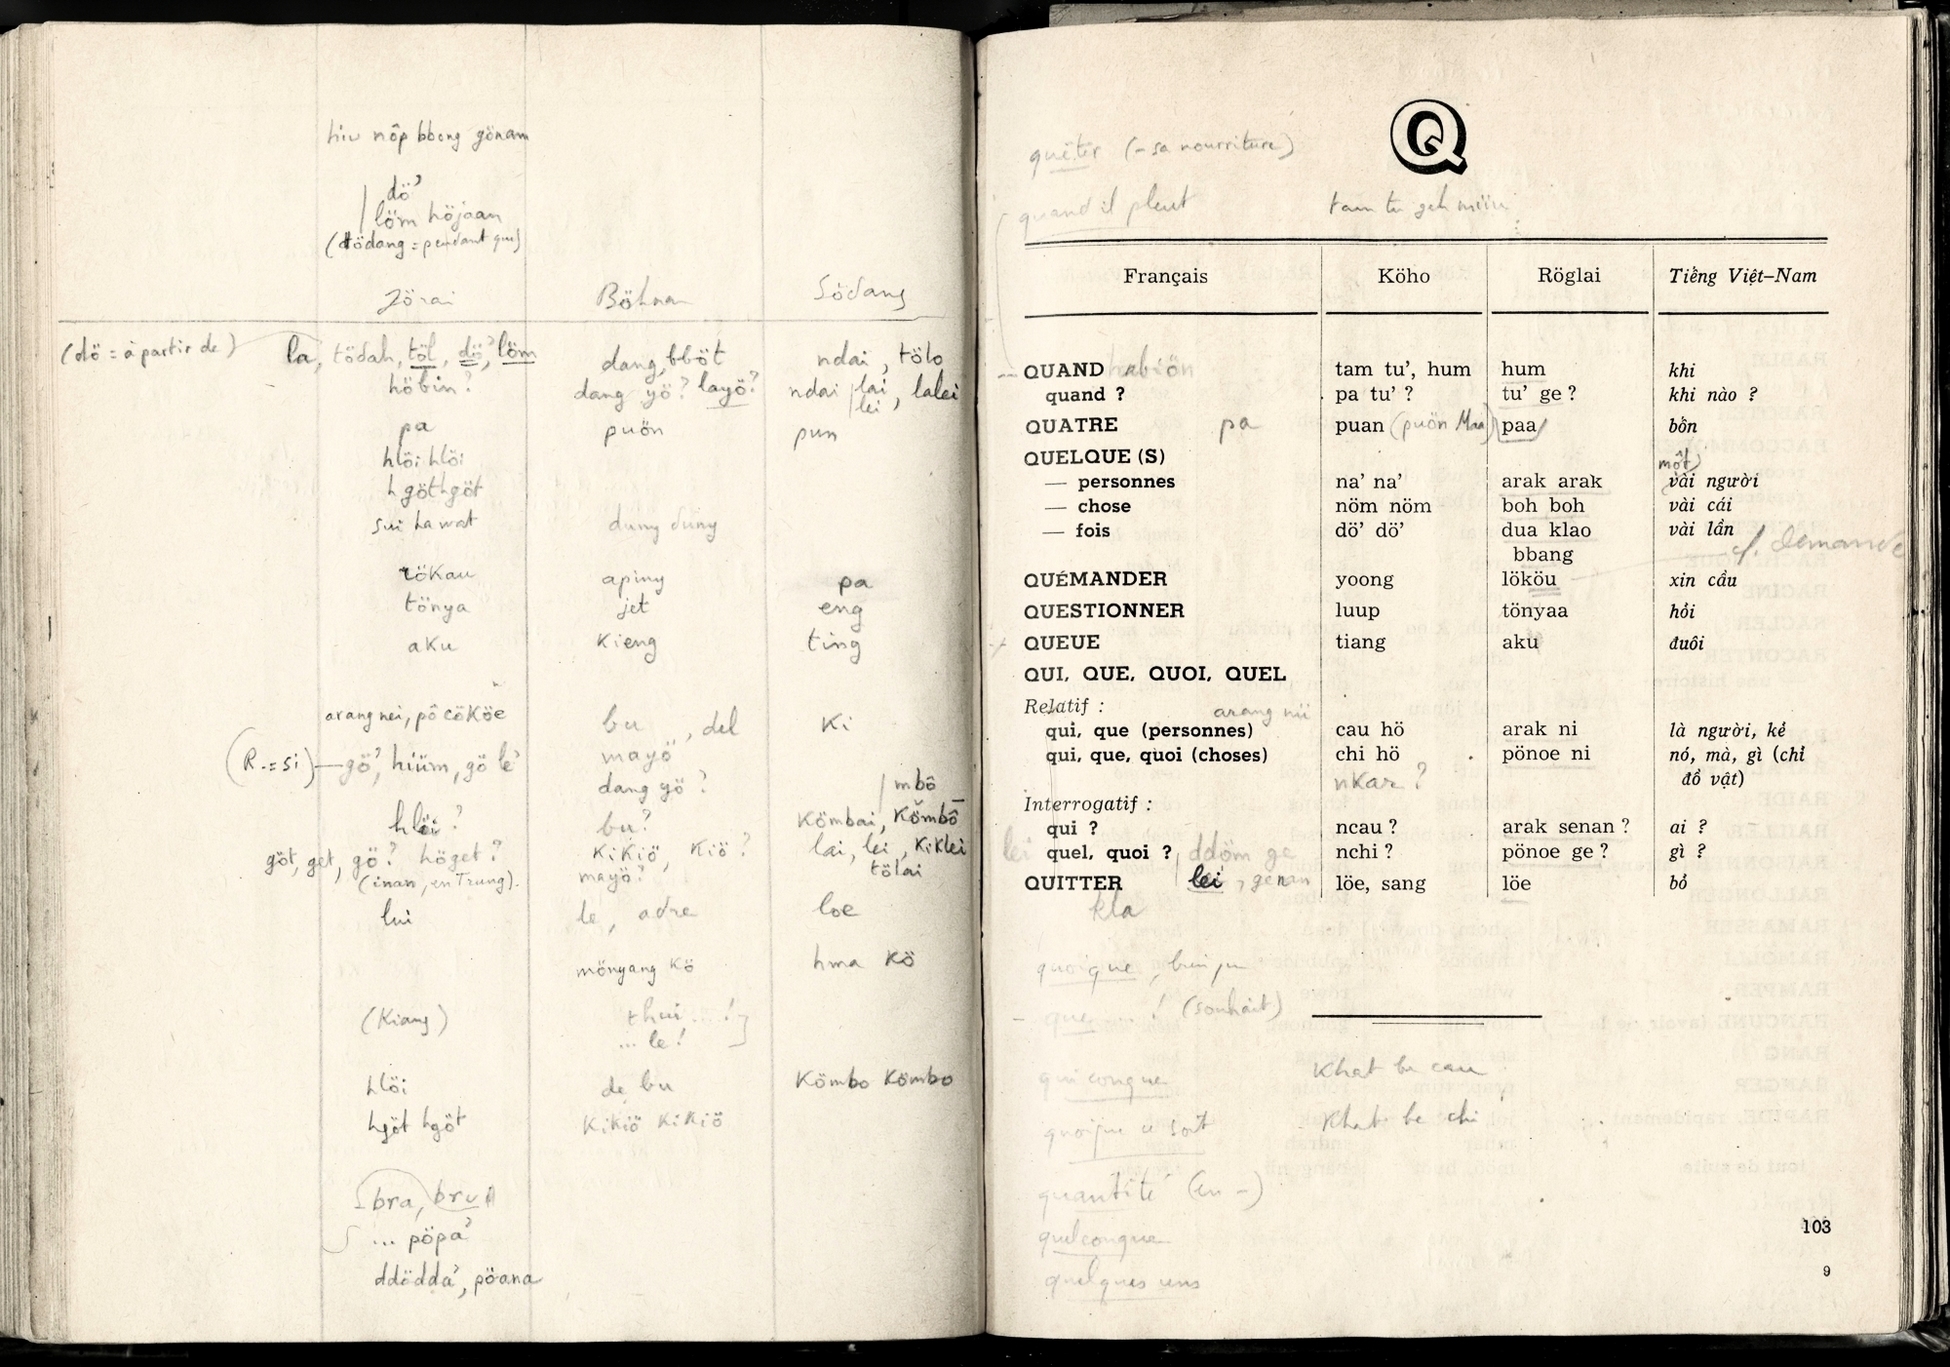 hiu nôp bbong gönam
dö'
löm höjaan
(tödang = pendant que)
Jörai Böhnar Södang
(dö = à partir de) la, tödah, töl, dö', löm dang, bböt ndai, tölo
höbin? dang yö? layö? ndai lai, lalei
lei
pa puön pun
hlöi hlöi
hgöthgöt
sui ha wat dung dung
rökau apiny pa
tönya jet eng
aku kieng ting
arang nei, pô cökôe bu, del ki
(R. = si) — gö', hiüm, gö le' mayö
dang yö? mbô
hlöi? bu? Kömbai, Kömbô
göt, get, gö? höget? KiKiö, Kiö? lai, lei, Kiklei
(inan, en Trung). mayö? tölai
lui le, adre loe
mönyang kö hma kö
(Kiang) thui ... !
... le!
hlöi de, bu Kömbo Kömbo
hgöt hgöt KiKiö KiKiö
bra, bru
... pöpa'
ddödda', pöana
Q
quêter (- sa nourriture)
quand il pleut tam tu geh miüu
Français Köho Röglai Tiếng Việt-Nam
QUAND habiön tam tu', hum hum khi
quand ? pa tu' ? tu' ge ? khi nào ?
QUATRE pa puan (puön Maa) paa bốn
QUELQUE (S) một)
— personnes na' na' arak arak vài người
— chose nöm nöm boh boh vài cái
— fois dö' dö' dua klao vài lần
bbang cf. demander
QUÉMANDER yoong lököu xin cầu
QUESTIONNER luup tönyaa hỏi
QUEUE tiang aku đuôi
QUI, QUE, QUOI, QUEL
Relatif : arang nii
qui, que (personnes) cau hö arak ni là người, kẻ
qui, que, quoi (choses) chi hö pönoe ni nó, mà, gì (chỉ
nkar ? đồ vật)
Interrogatif :
qui ? ncau ? arak senan ? ai ?
lei quel, quoi ? ddöm ge nchi ? pönoe ge ? gì ?
QUITTER lei, genan löe, sang löe bỏ
kla
quoique, bien que
que ... ! (souhait)
quiconque Khat be cau
quoique ce soit Khat be chi
quantité (en -)
quelconque
quelques uns
103
9